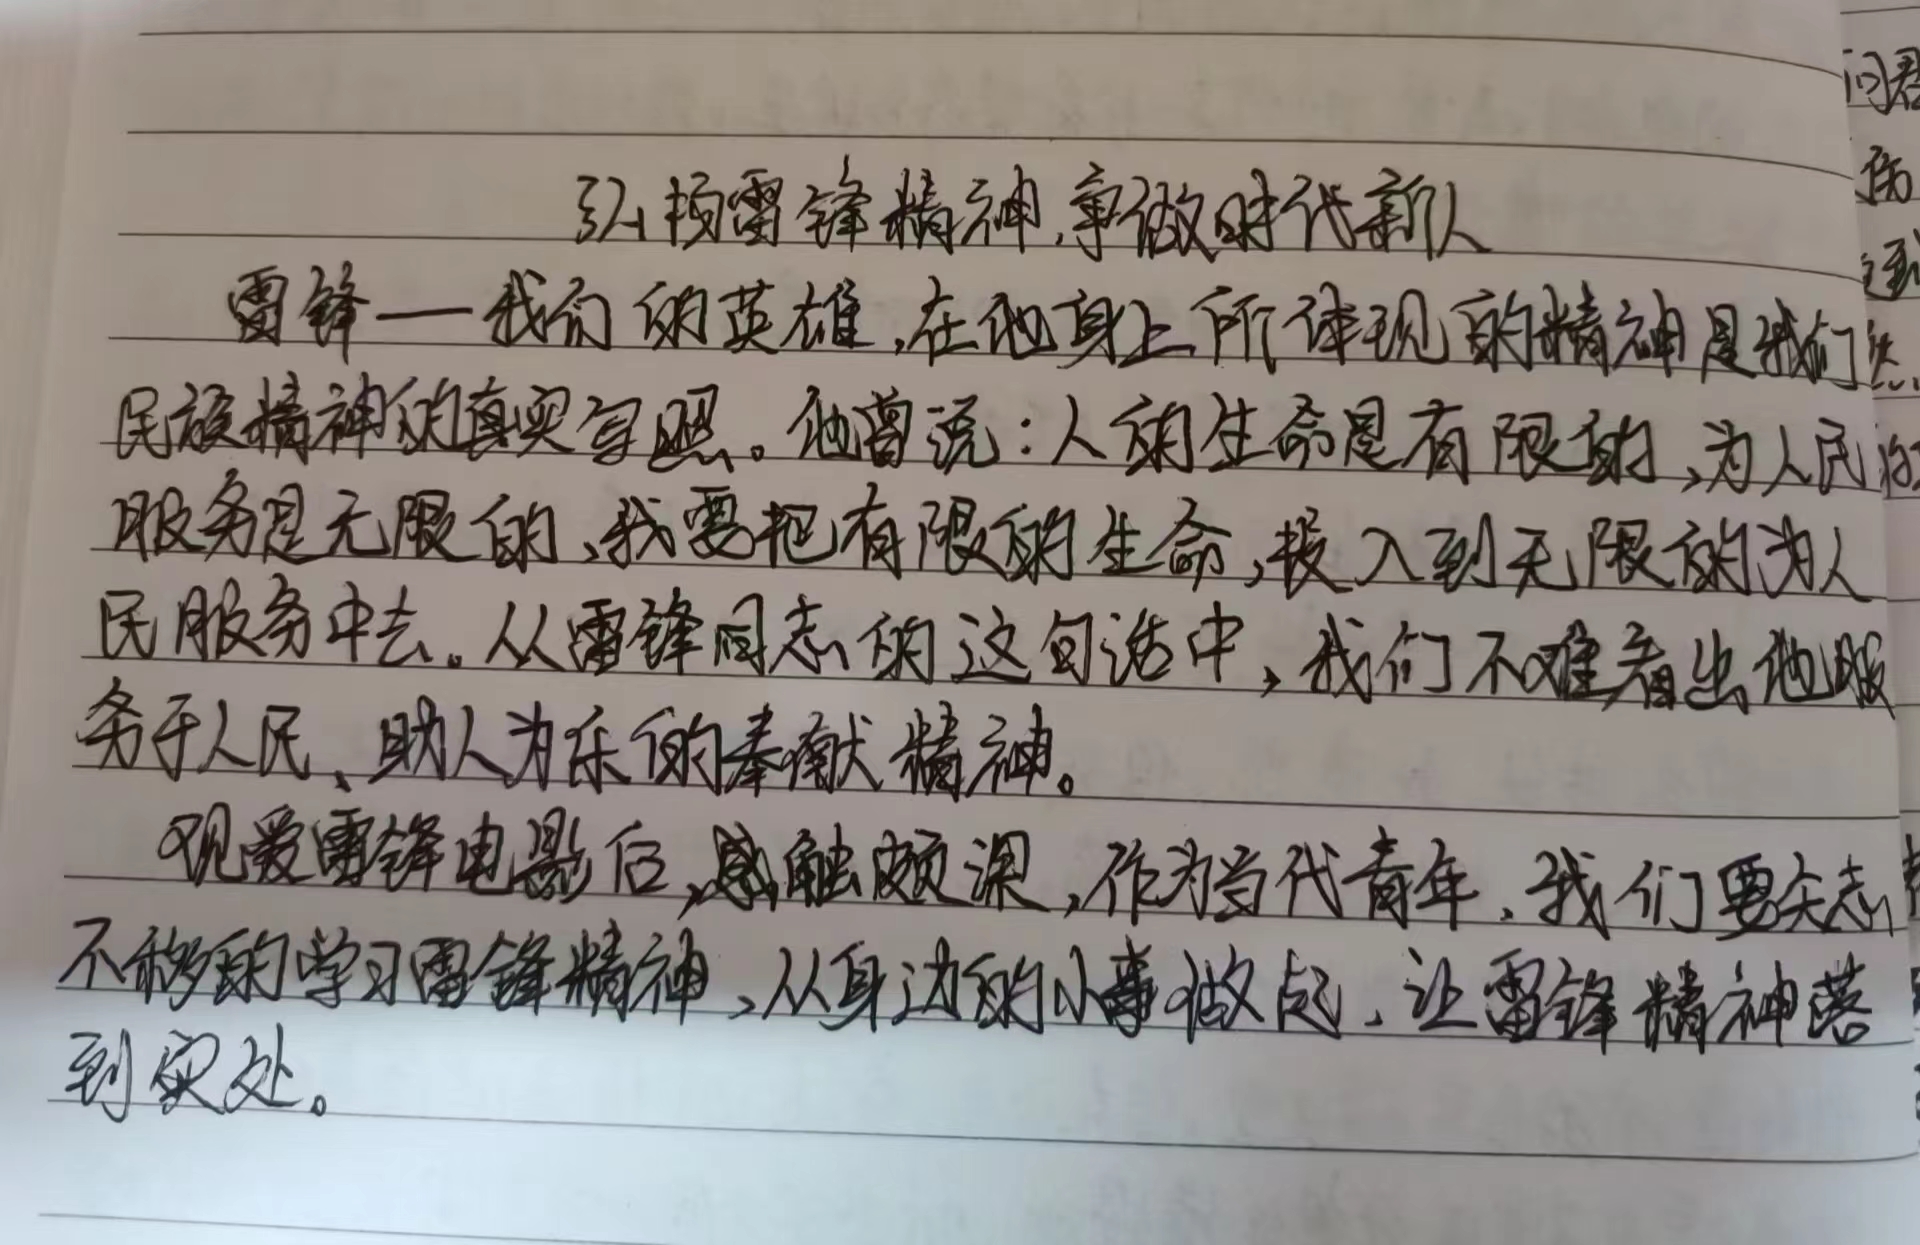 弘扬雷锋精神,争做时代新人
雷锋——我们的英雄,在他身上所体现的精神是我们
民族精神的真实写照。他曾说:人的生命是有限的,为人民
服务是无限的,我要把有限的生命,投入到无限的为人
民服务中去。从雷锋同志的这句话中,我们不难看出他服
务于人民、助人为乐的奉献精神。
观爱雷锋电影后,感触颇深,作为当代青年,我们要矢志
不移的学习雷锋精神,从身边的小事做起,让雷锋精神落
到实处。